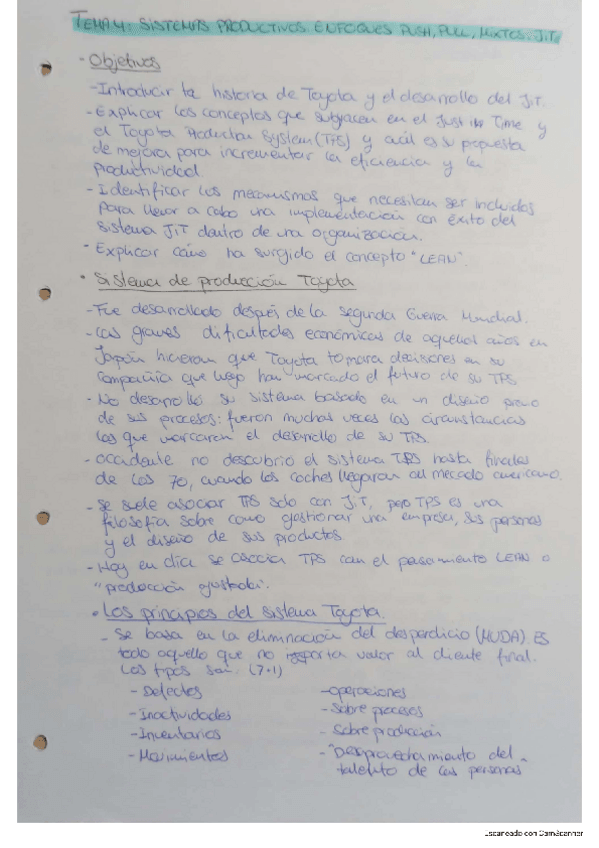 TEMA 4: SISTEMAS PRODUCTIVOS. ENFOQUES PUSH, PULL, MIXTOS: J.I.T.
· Objetivos
-Introducir la historia de Toyota y el desarollo del J.I.T.
-Explicar los conceptos que subyacen en el Just in Time y
el Toyota Production System (TPS) y cuál es su propuesta
de mejora para incrementar la eficiencia y la
productividad.
-Identificar los mecanismos que necesitan ser incluidos
para llevar a cabo una implementación con éxito del
sistema JIT dentro de una organización.
- Explicar cómo ha surgido el concepto "LEAN".
· Sistema de producción Toyota
-Fue desarollado después de la segunda Guerra Mundial.
-Las graves dificultades económicas de aquellos años en
Japón hicieron que Toyota tomara decisiones en su
compañía que luego han marcado el futuro de su TPS
- No desarolló su sistema basado en un diseño previo
de sus procesos: fueron muchas veces las circunstancias
las que marcaron el desarollo de su TPS.
- occidente no descubrió el sistema TPS hasta finales
de los 70, cuando los coches llegaron al mercado americano.
-Se suele asociar TPS solo con J.I.T, pero TPS es una
filosofía sobre como gestionar una empresa, sus personas
y el diseño de sus productos
-Hoy en día se asocia TPS con el pensamiento LEAN o
"producción ajustada".
· Los principios del sistema Toyota.
- Se basa en la eliminación del desperdicio (MUDA). ES
todo aquello que no aporta valor al cliente final.
Los tipos son: (7+1)
- Defectos
-operaciones
- Inactividades
- Sobre procesos
-Inventarios
- Sobre producción
- Movimientos
- "Desaprovechamiento del
talento de las personas
Escaneado con CamScanner